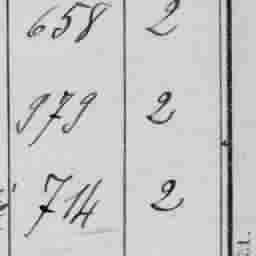 658 2
979 2
714 2